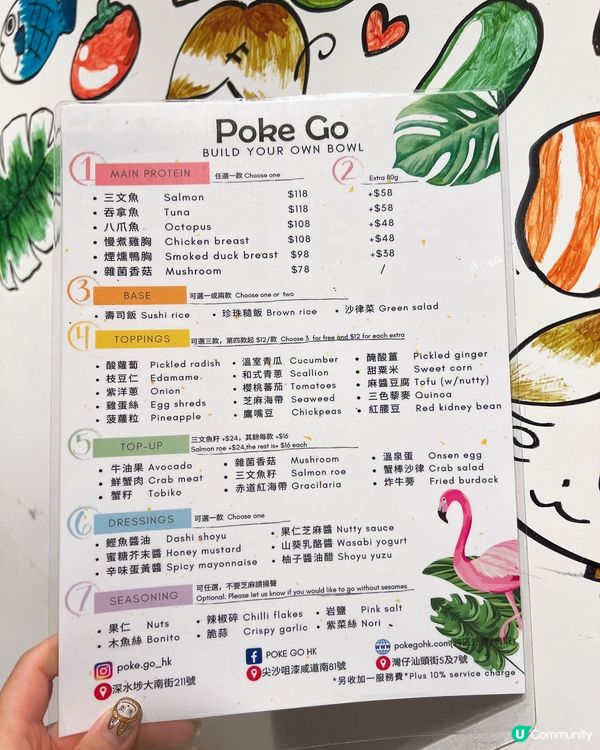 Poke Go
BUILD YOUR OWN BOWL
1 MAIN PROTEIN 任選一款 Choose one 2 Extra 80g
• 三文魚 Salmon $118 +$58
• 吞拿魚 Tuna $118 +$58
• 八爪魚 Octopus $108 +$48
• 慢煮雞胸 Chicken breast $108 +$48
• 煙燻鴨胸 Smoked duck breast $98 +$38
• 雜菌香菇 Mushroom $78 /
3 BASE 可選一或兩款 Choose one or two
• 壽司飯 Sushi rice • 珍珠糙飯 Brown rice • 沙律菜 Green salad
4 TOPPINGS 可選三款，第四款起 $12/款 Choose 3 for free and $12 for each extra
• 酸蘿蔔 Pickled radish • 溫室青瓜 Cucumber • 醃酸薑 Pickled ginger
• 枝豆仁 Edamame • 和式青蔥 Scallion • 甜粟米 Sweet corn
• 紫洋蔥 Onion • 櫻桃蕃茄 Tomatoes • 麻醬豆腐 Tofu (w/nutty)
• 雞蛋絲 Egg shreds • 芝麻海帶 Seaweed • 三色藜麥 Quinoa
• 菠蘿粒 Pineapple • 鷹嘴豆 Chickpeas • 紅腰豆 Red kidney bean
5 TOP-UP 三文魚籽 +$24，其餘每款 +$16
Salmon roe +$24,the rest is+ $16 each
• 牛油果 Avocado • 雜菌香菇 Mushroom • 溫泉蛋 Onsen egg
• 鮮蟹肉 Crab meat • 三文魚籽 Salmon roe • 蟹棒沙律 Crab salad
• 蟹籽 Tobiko • 赤道紅海帶 Gracilaria • 炸牛蒡 Fried burdock
6 DRESSINGS 可選一款 Choose one
• 鰹魚醬油 Dashi shoyu • 果仁芝麻醬 Nutty sauce
• 蜜糖芥末醬 Honey mustard • 山葵乳酪醬 Wasabi yogurt
• 辛味蛋黃醬 Spicy mayonnaise • 柚子醬油醋 Shoyu yuzu
7 SEASONING 可任選，不要芝麻請揚聲
Optional. Please let us know if you would like to go without sesames
• 果仁 Nuts • 辣椒碎 Chilli flakes • 岩鹽 Pink salt
• 木魚絲 Bonito • 脆蒜 Crispy garlic • 紫菜絲 Nori
poke.go_hk POKE GO HK www pokegohk.com
深水埗大南街211號 尖沙咀漆咸道南81號 灣仔汕頭街5及7號
*另收加一服務費*Plus 10% service charge
U Community